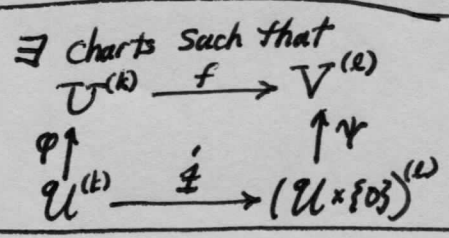 ∃ charts such that
U^(k) —f→ V^(l)
φ↑ ↑ψ
𝒰^(k) —i→ (𝒰×{0})^(l)